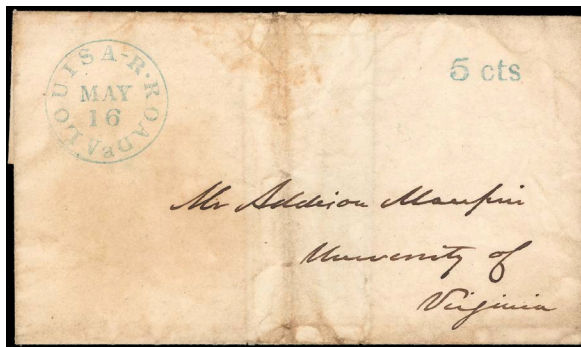 LOUISA-R·ROAD Va
MAY
16
5 cts
Mr Addison Maupin
University of
Virginia